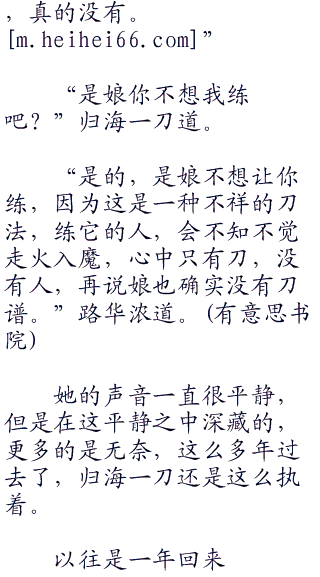 ，真的没有。
[m.heihei66.com]”
“是娘你不想我练
吧？”归海一刀道。
“是的，是娘不想让你
练，因为这是一种不祥的刀
法，练它的人，会不知不觉
走火入魔，心中只有刀，没
有人，再说娘也确实没有刀
谱。”路华浓道。(有意思书
院)
她的声音一直很平静，
但是在这平静之中深藏的，
更多的是无奈，这么多年过
去了，归海一刀还是这么执
着。
以往是一年回来